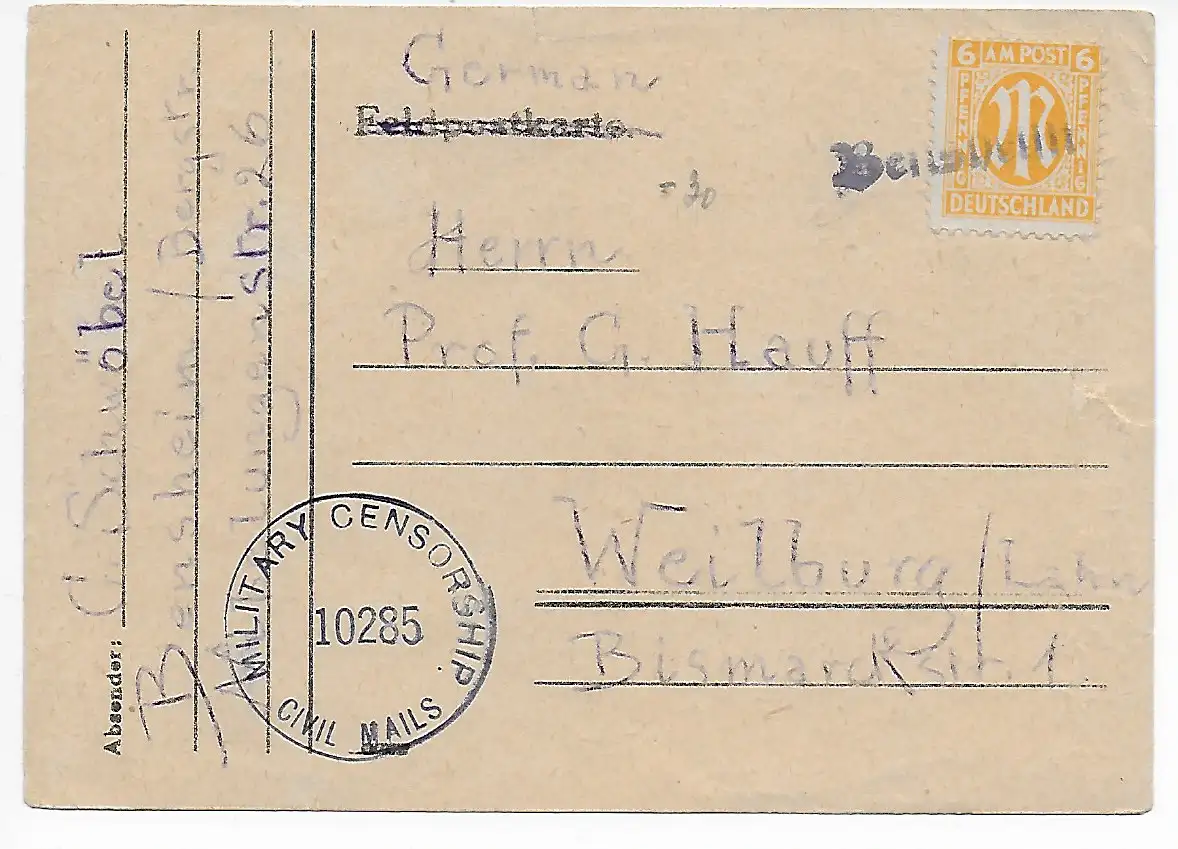 German
Feldpostkarte
6 AM POST 6
PFENNIG PFENNIG
DEUTSCHLAND
Herrn
Prof. G. Hauff
Weilburg/Lahn
Bismarckstr. 1.
Absender: G. Schwöbel
Bensheim/Bergstr.
str. 26
MILITARY CENSORSHIP
10285
CIVIL MAILS